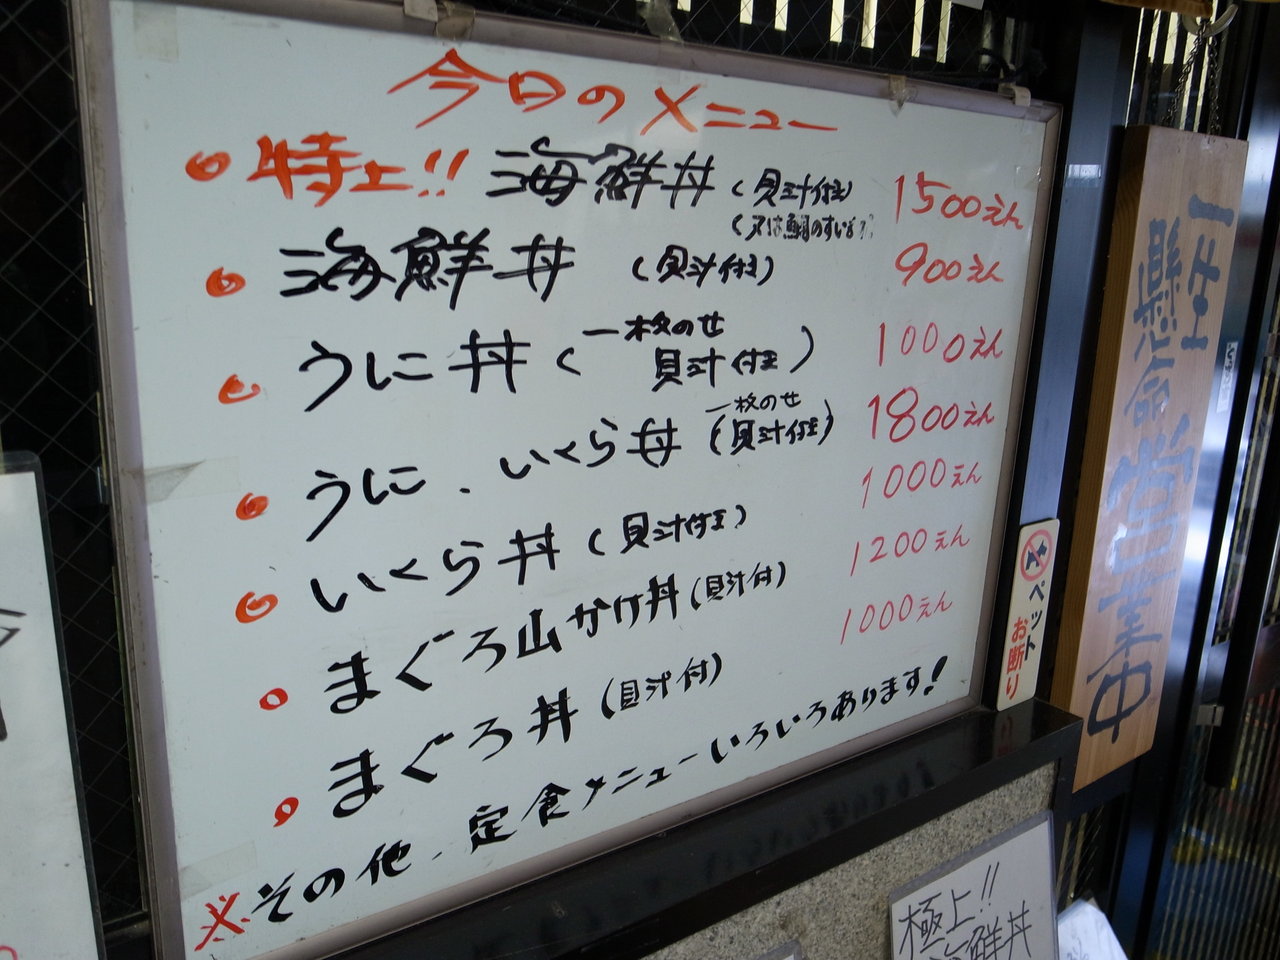 今日のメニュー
特上!! 海鮮丼 (貝汁付き) 1500えん
(又は鯛のすいもの)
海鮮丼 (貝汁付き) 900えん
うに丼 (一枚のせ 貝汁付き) 1000えん
うに、いくら丼 (一枚のせ 貝汁付き) 1800えん
いくら丼 (貝汁付き) 1000えん
まぐろ山かけ丼 (貝汁付) 1200えん
まぐろ丼 (貝汁付) 1000えん
※その他、定食メニューいろいろあります!
ペット
お断り
極上!!
海鮮丼